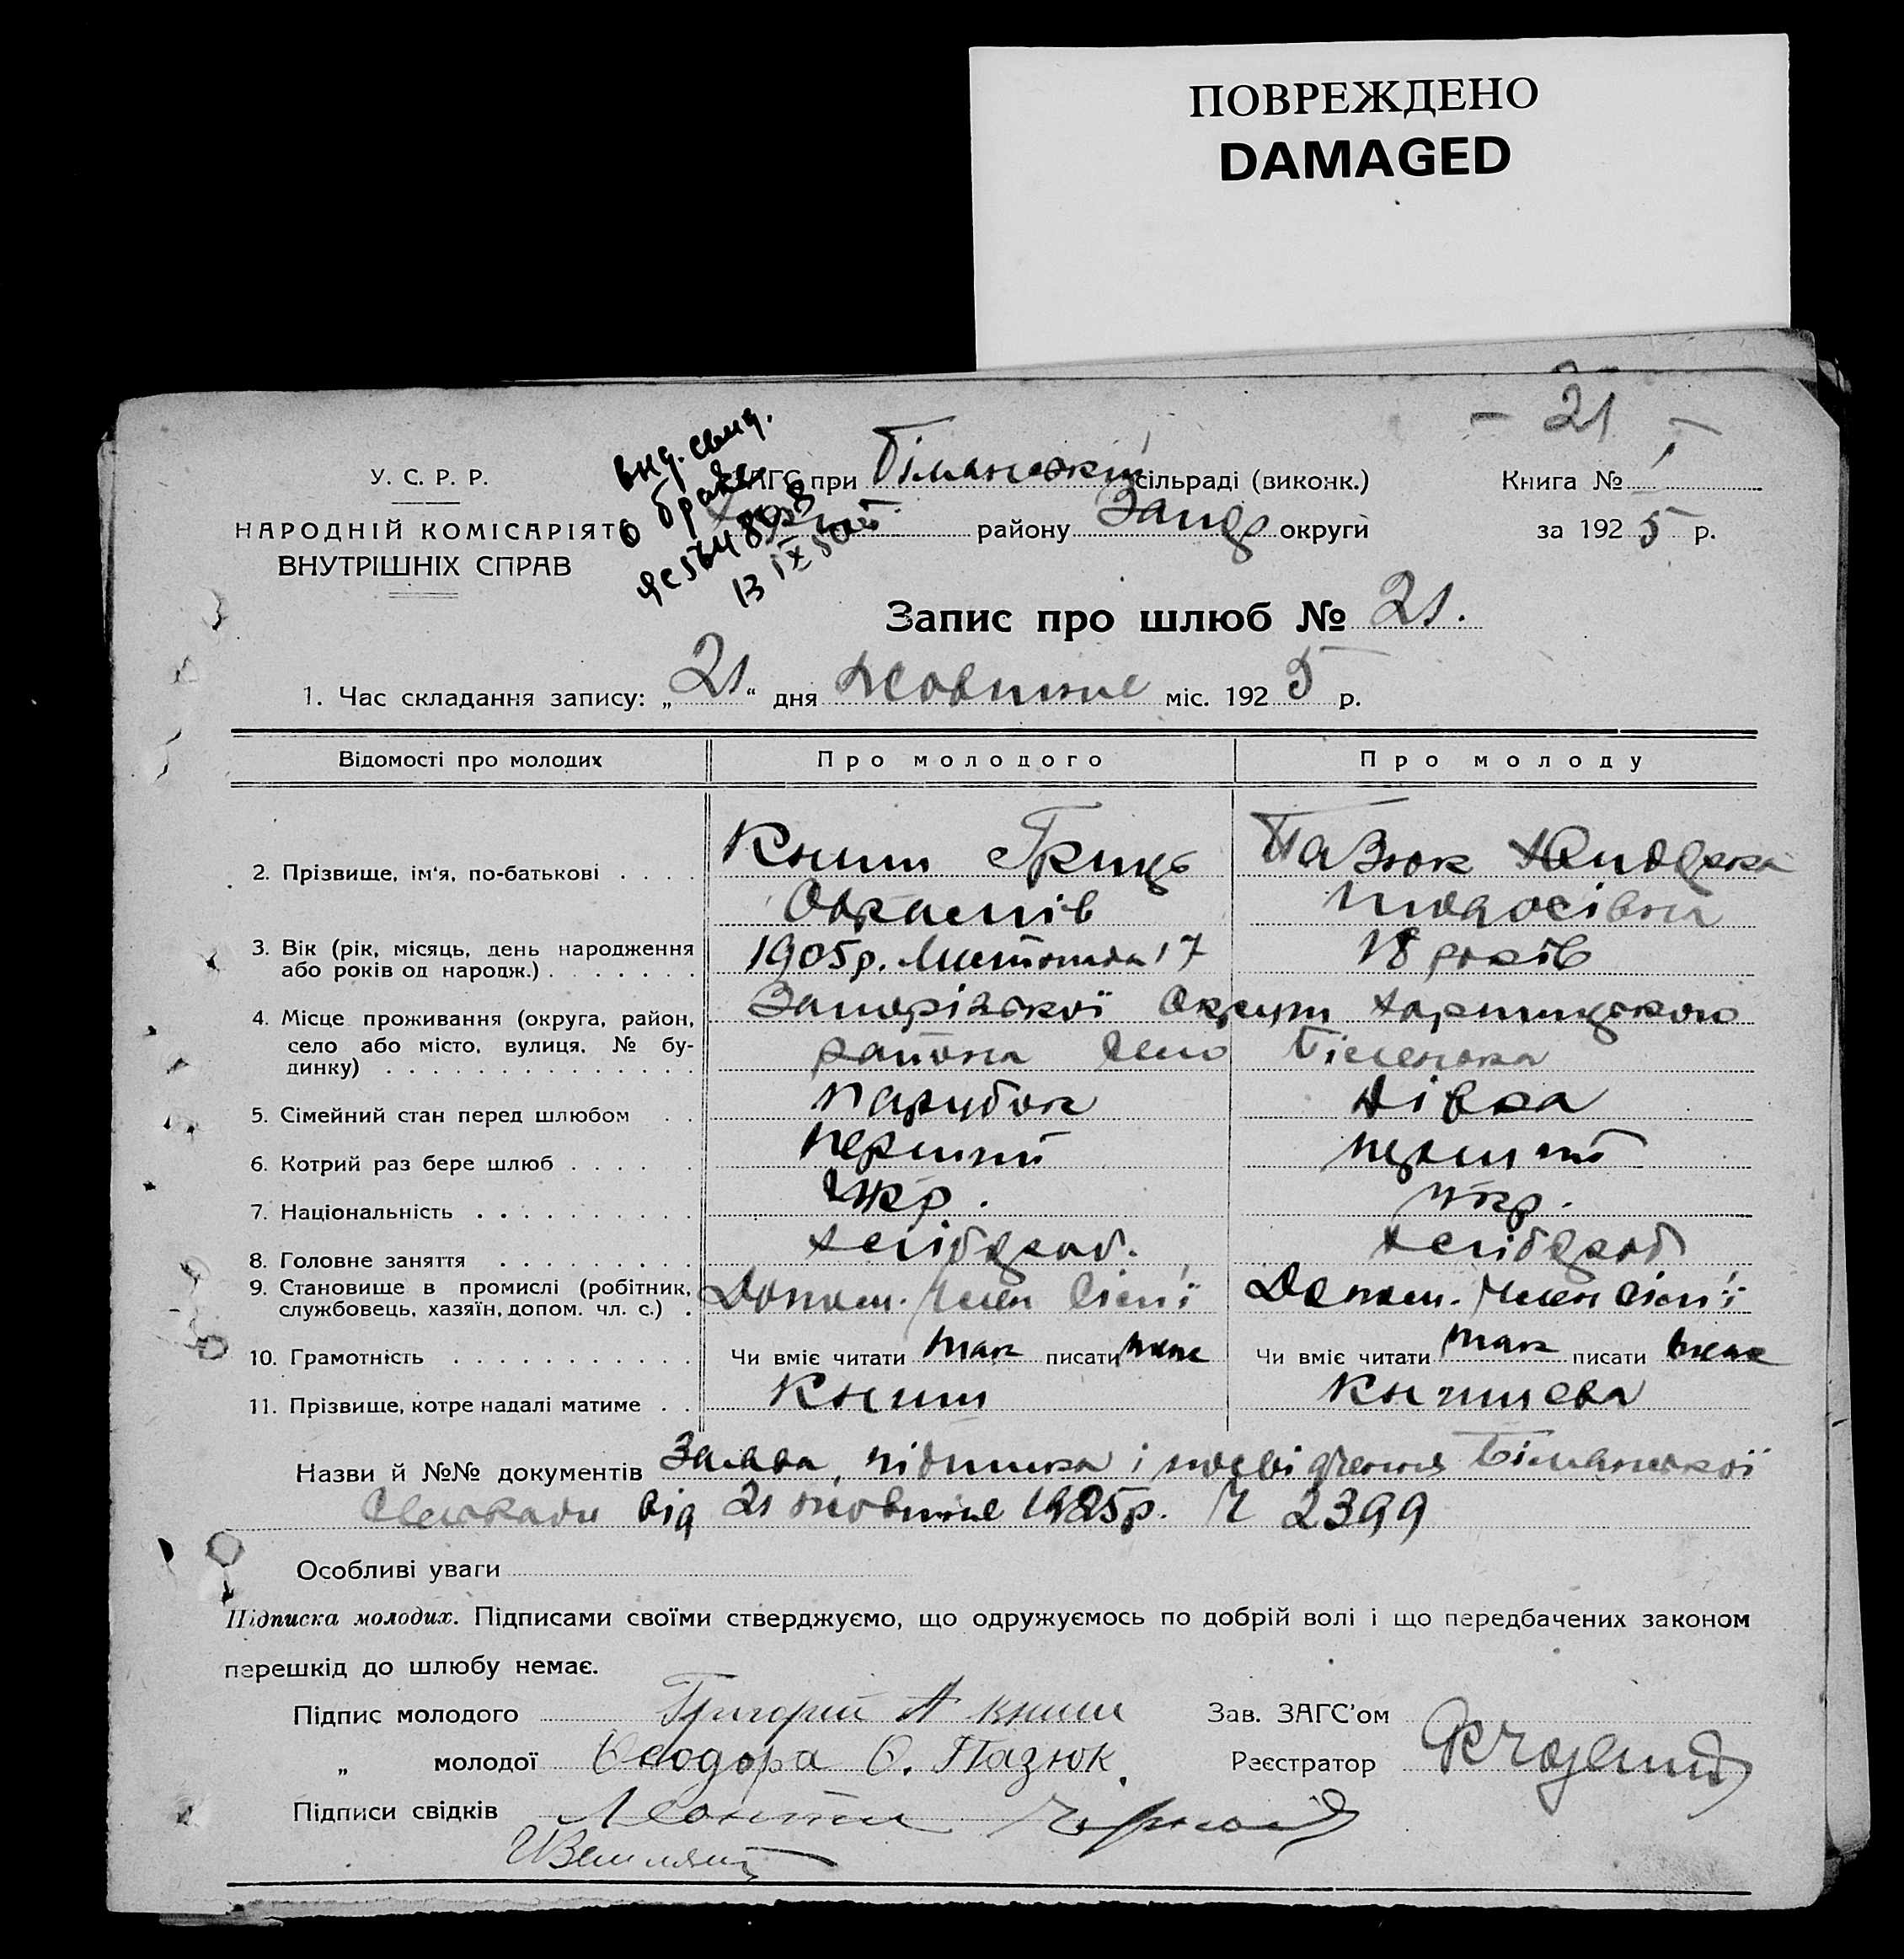 ПОВРЕЖДЕНО
DAMAGED
- 21 -
У. С. Р. Р.
НАРОДНІЙ КОМІСАРІЯТ
ВНУТРІШНІХ СПРАВ
вид. свид.
о браке
13 IX 50
ЗАГС при сільраді (виконк.)
району Запор округи
Книга № 1
за 1925 р.
Запис про шлюб № 21.
1. Час складання запису: „21“ дня Жовтня міс. 1925 р.
Відомості про молодих Про молодого Про молоду
2. Прізвище, ім'я, по-батькові . . . . Книш Гриць Пазюк
Овраамів
3. Вік (рік, місяць, день народження 1905р. Листопада 17 18 років
або років од народж.) . . . . . . .
4. Місце проживання (округа, район, Запорізької Округи Хортицького
село або місто, вулиця, № бу- района Село Біленька
динку) . . . . . . . . . . . . . .
5. Сімейний стан перед шлюбом . . парубок дівка
6. Котрий раз бере шлюб . . . . . перший перший
7. Національність . . . . . . . . . Укр. Укр.
8. Головне заняття . . . . . . . . . хлібороб. хлібороб
9. Становище в промислі (робітник, Допом. Член Сім'ї Допом. Член Сім'ї
службовець, хазяїн, допом. чл. с.) .
10. Грамотність . . . . . . . . . . . Чи вміє читати так писати теж Чи вміє читати так писати теж
11. Прізвище, котре надалі матиме . . Книш Книшева
Назви й №№ документів Заява, підписка і посвідчення
Сельради від 21 жовтня 1925р. Ч 2399
Особливі уваги
Підписка молодих. Підписами своїми стверджуємо, що одружуємось по добрій волі і що передбачених законом
перешкід до шлюбу немає.
Підпис молодого Григорий А Книш Зав. ЗАГС'ом
„ молодої Феодора Ф. Пазюк. Реєстратор
Підписи свідків Леонтий